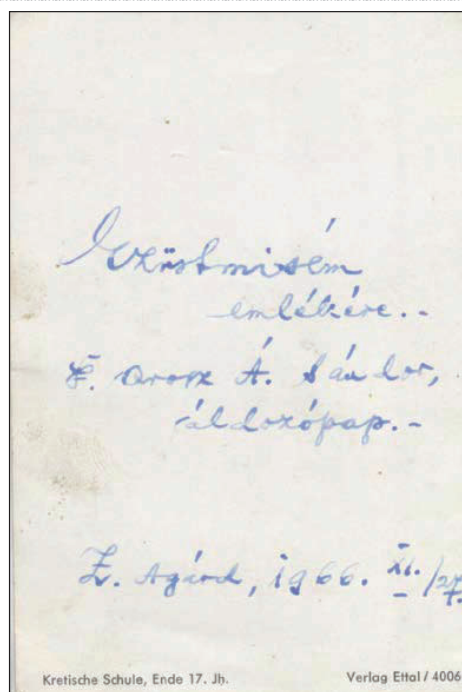 Ezüstmisém
emlékére..-
F. Orosz Á. Sándor,
áldozópap.-
Z. Agárd, 1966. XI./27.
Kretische Schule, Ende 17. Jh.
Verlag Ettal / 4006